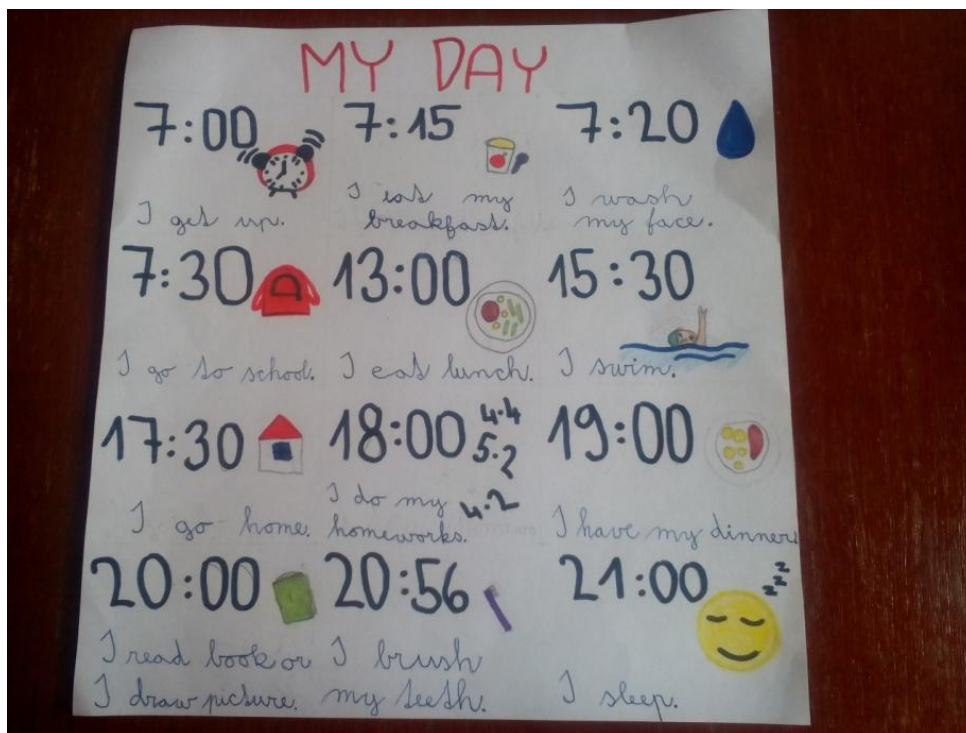 MY DAY
7:00
I get up.
7:15
I eat my
breakfast.
7:20
I wash
my face.
7:30
I go to school.
13:00
I eat lunch.
15:30
I swim.
17:30
I go home.
18:00
4.4
5.2
4.2
I do my
homeworks.
19:00
I have my dinner.
20:00
I read book or
I draw picture.
20:56
I brush
my teeth.
21:00
z z z
I sleep.